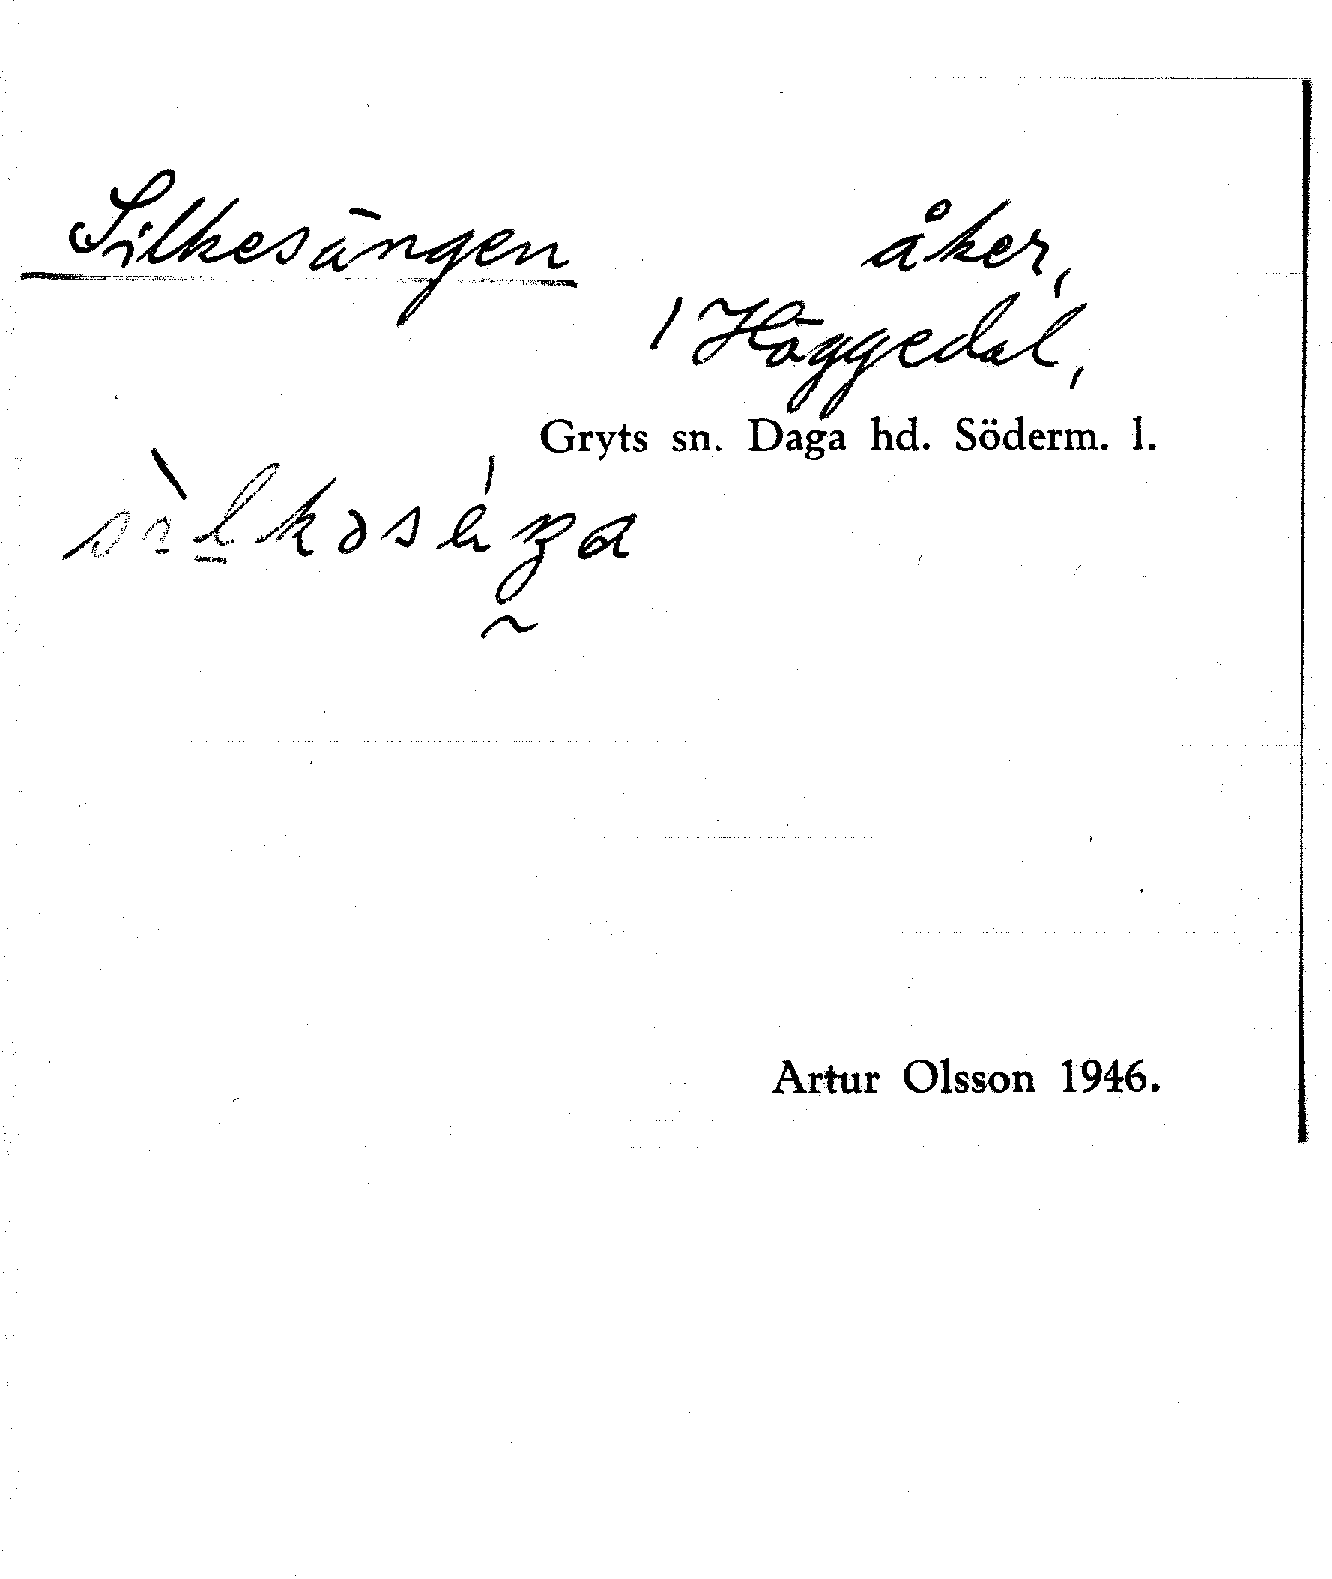 Silkesängen åker,
1 Höggedal,
Gryts sn. Daga hd. Söderm. l.
Artur Olsson 1946.